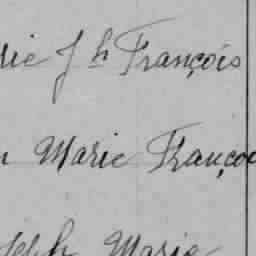 rie Jh François
n Marie Françoi
Joseph Marie